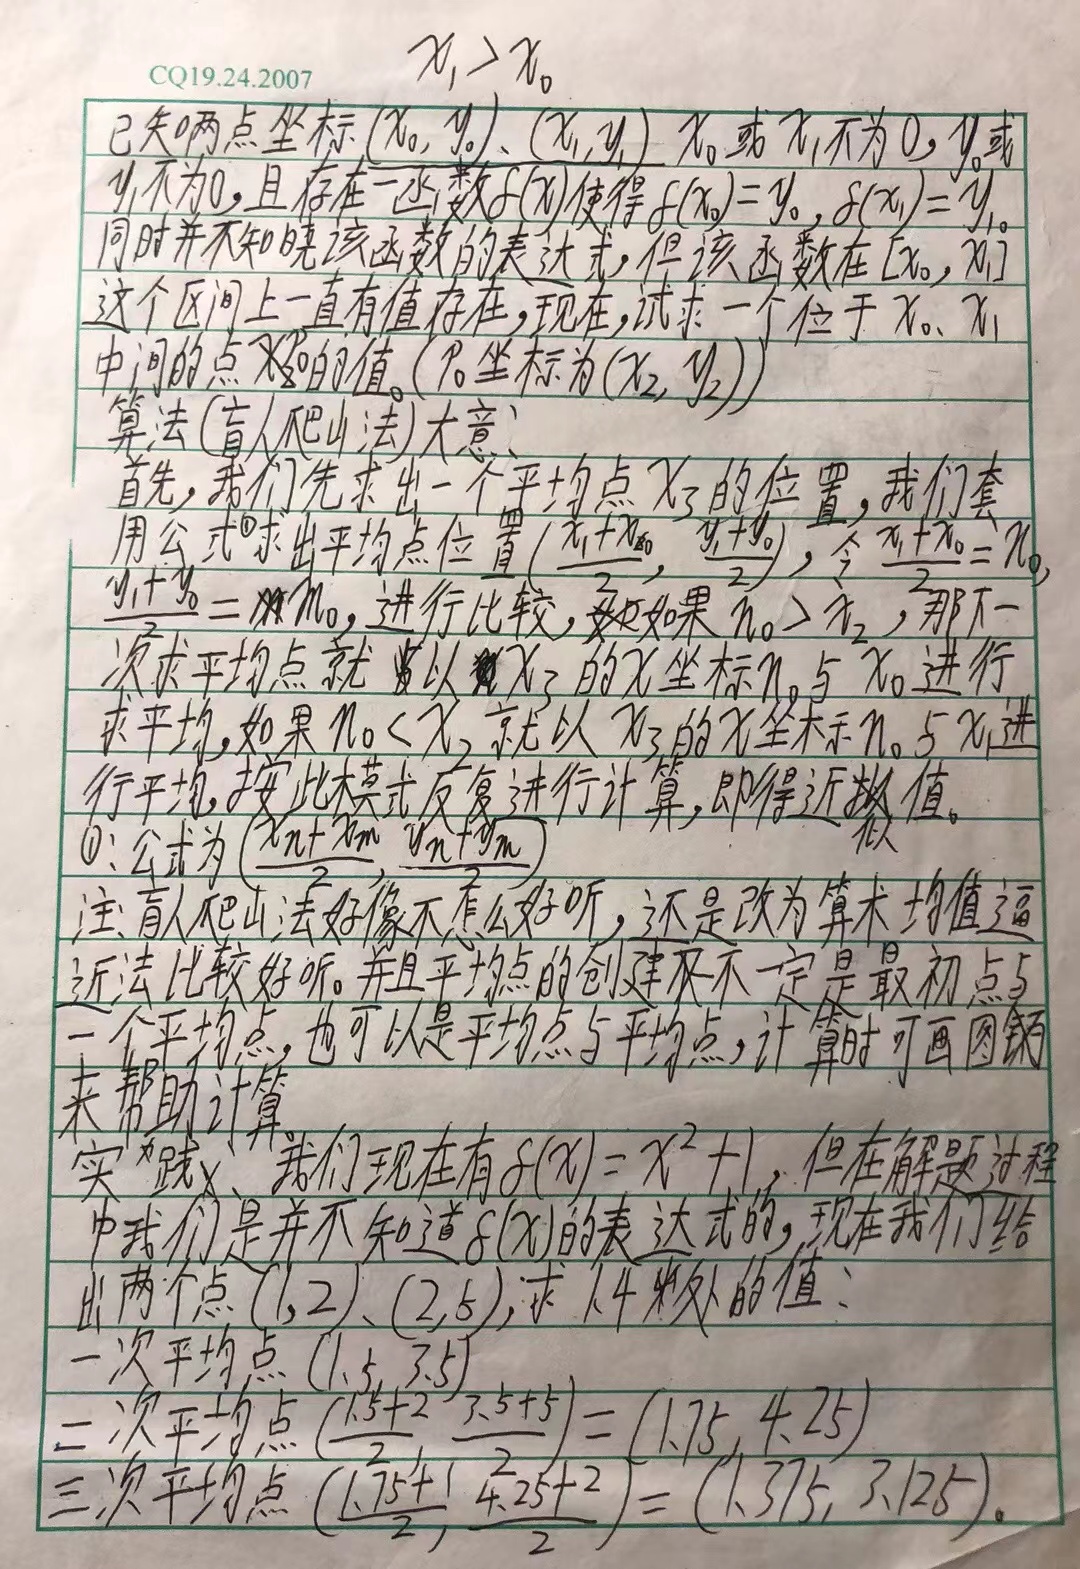 x₁>x₀
CQ19.24.2007
已知两点坐标(x₀,y₀)、(x₁,y₁) x₀或x₁不为0,y₀或
y₁不为0,且存在一函数f(x)使得f(x₀)=y₀,f(x₁)=y₁。
同时并不知晓该函数的表达式,但该函数在[x₀,x₁]
这个区间上一直有值存在,现在,试求一个位于x₀、x₁
中间的点P₀的值。(P₀坐标为(x₂,y₂))
算法(盲人爬山法)大意:
首先,我们先求出一个平均点X₃的位置,我们套
用公式①求出平均点位置(x₁+x₀/2, y₁+y₀/2),令x₁+x₀/2=n₀,
y₁+y₀/2=m₀,进行比较,如果n₀>x₂,那下一
次求平均点就以X₃的x坐标n₀与x₀进行
求平均,如果n₀<x₂就以X₃的x坐标n₀与x₁进
行平均,按此模式反复进行计算,即得近似值。
①:公式为(xn+xm/2, yn+ym/2)
注:盲人爬山法好像不怎么好听,还是改为算术均值逼
近法比较好听。并且平均点的创建不一定是最初点与
一个平均点,也可以是平均点与平均点,计算时可画图
来帮助计算
实践、我们现在有f(x)=x²+1,但在解题过程
中我们是并不知道f(x)的表达式的,现在我们给
出两个点(1,2)、(2,5),求1.4处的值:
一次平均点(1.5,3.5)
二次平均点(1.5+2/2, 3.5+5/2)=(1.75,4.25)
三次平均点(1.75+1/2, 4.25+2/2)=(1.375,3.125)。